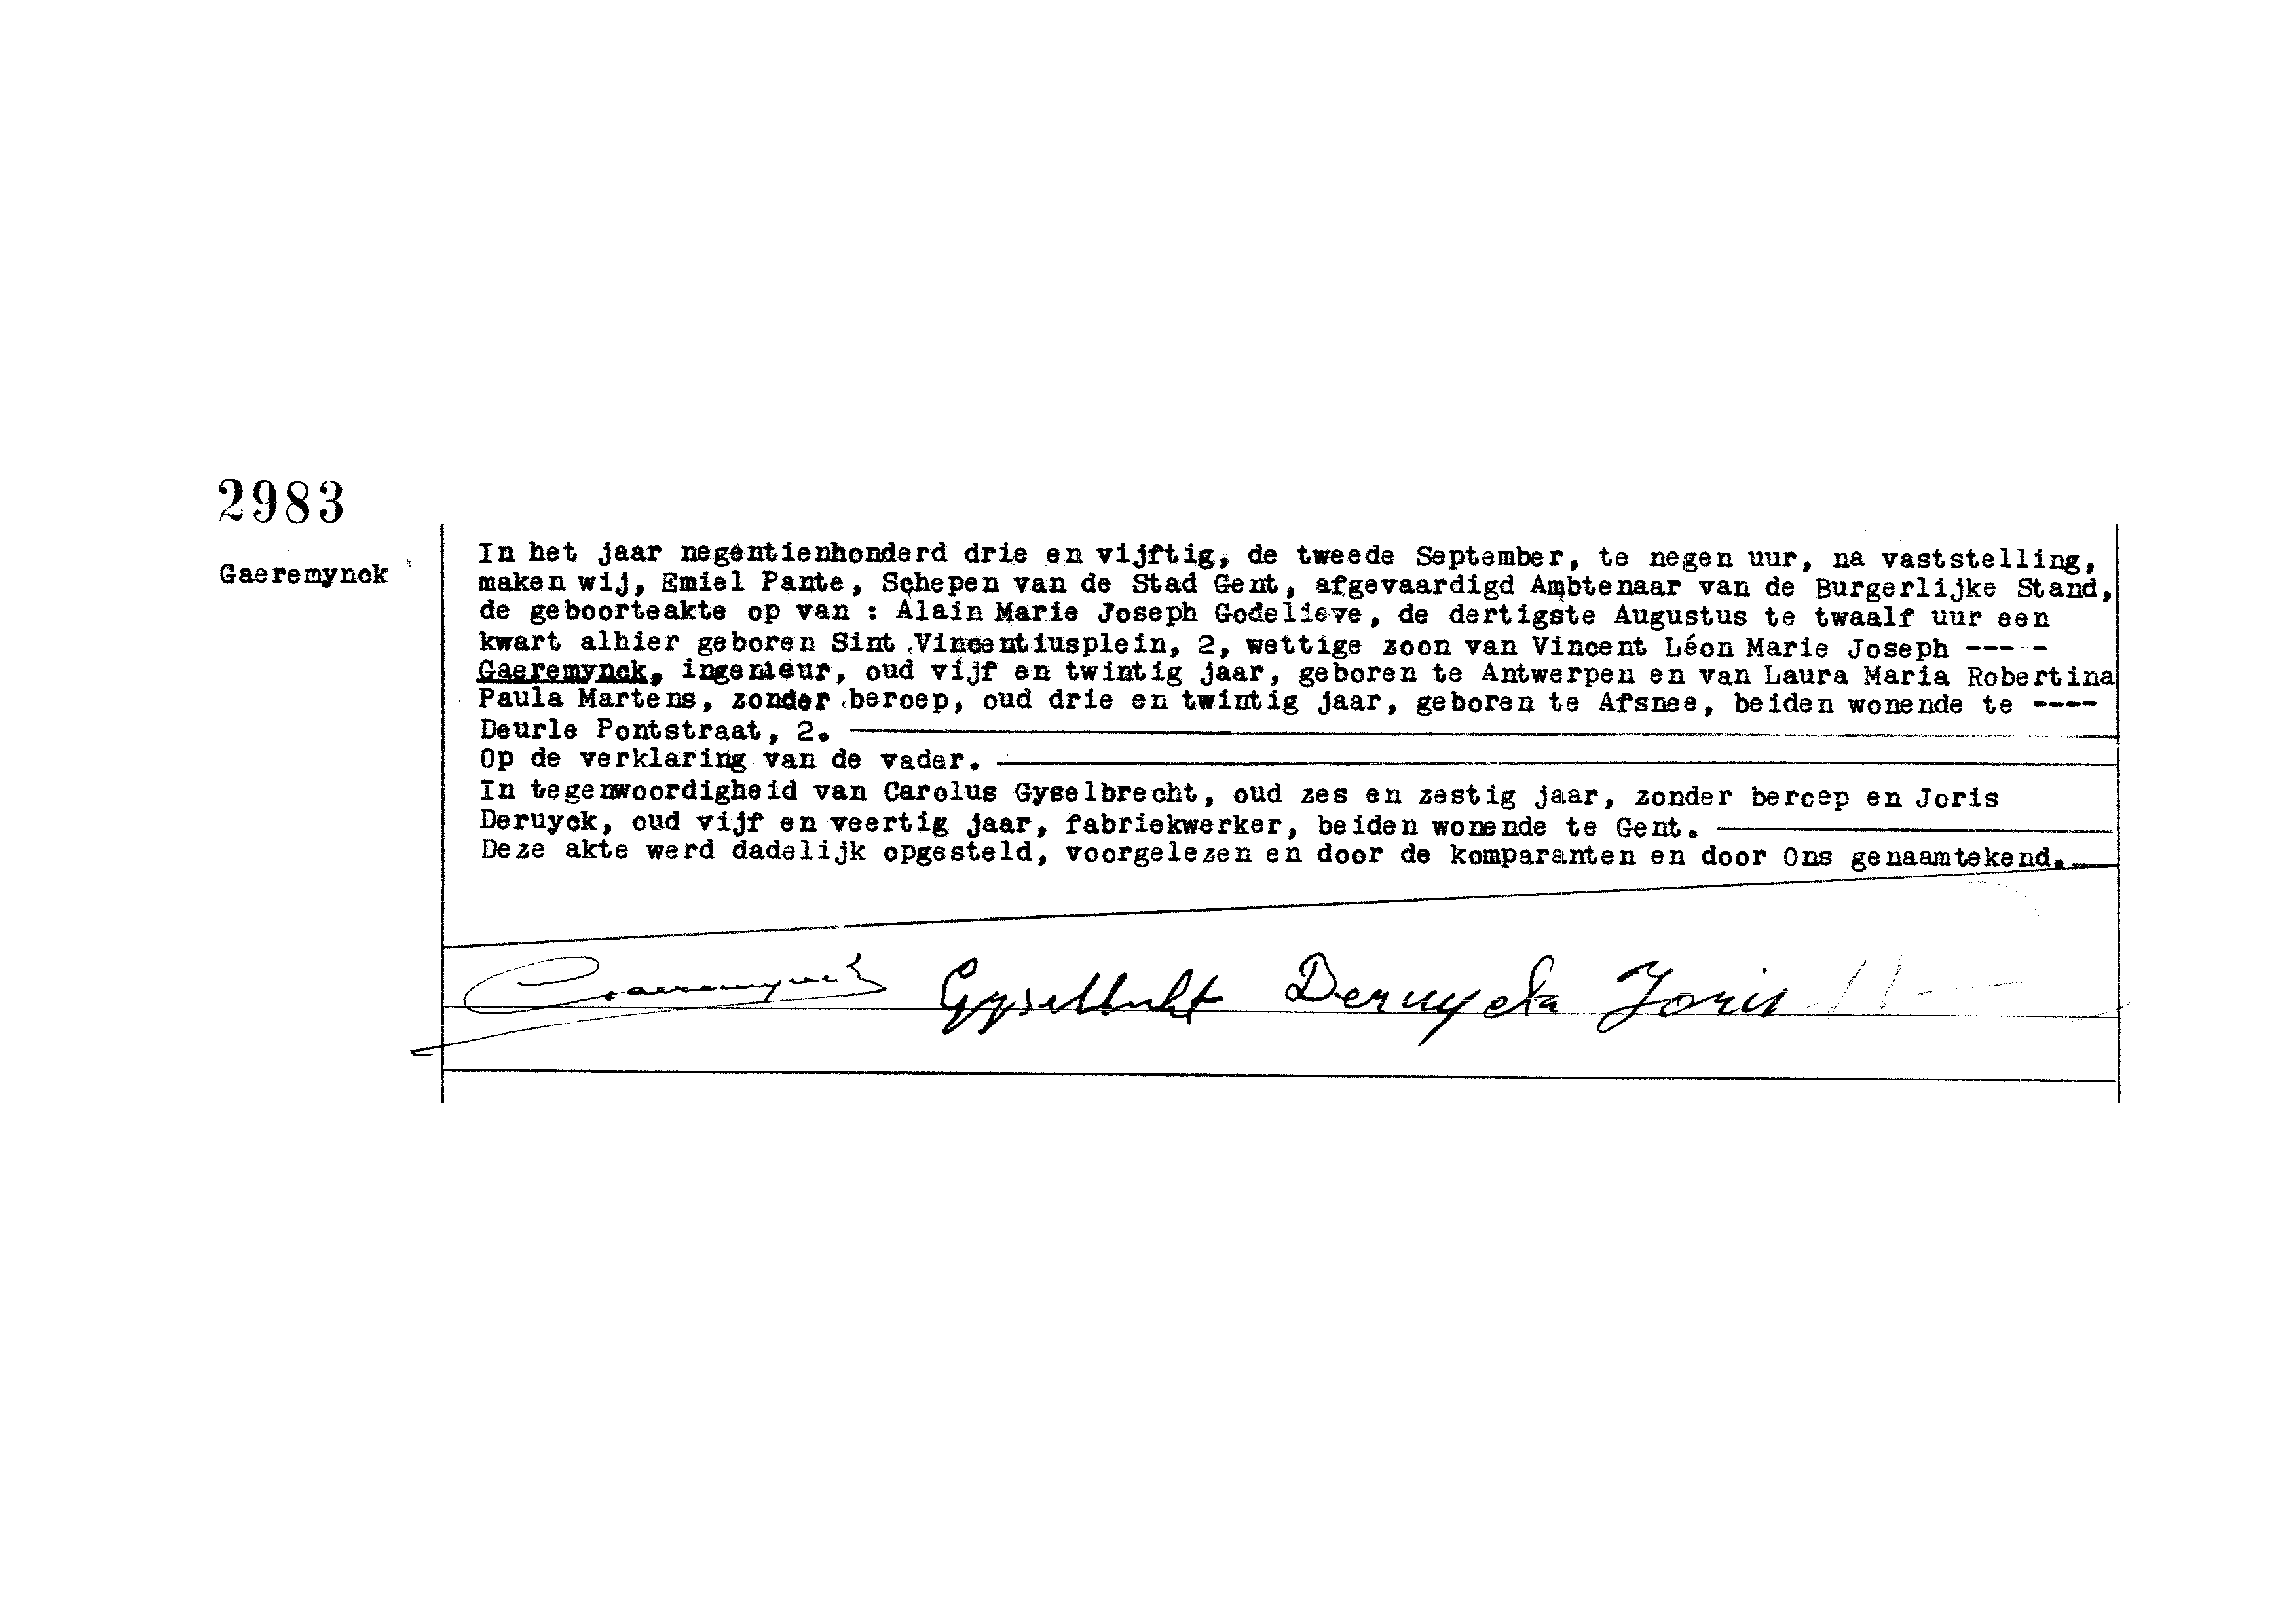 2983
Gaeremynck
In het jaar negentienhonderd drie en vijftig, de tweede September, te negen uur, na vaststelling,
maken wij, Emiel Pante, Schepen van de Stad Gent, afgevaardigd Ambtenaar van de Burgerlijke Stand,
de geboorteakte op van : Alain Marie Joseph Godelieve, de dertigste Augustus te twaalf uur een
kwart alhier geboren Sint Vincentiusplein, 2, wettige zoon van Vincent Léon Marie Joseph -----
Gaeremynck, ingenieur, oud vijf en twintig jaar, geboren te Antwerpen en van Laura Maria Robertina
Paula Martens, zonder beroep, oud drie en twintig jaar, geboren te Afsnee, beiden wonende te ----
Deurle Pontstraat, 2.
Op de verklaring van de vader.
In tegenwoordigheid van Carolus Gyselbrecht, oud zes en zestig jaar, zonder beroep en Joris
Deruyck, oud vijf en veertig jaar, fabriekwerker, beiden wonende te Gent.
Deze akte werd dadelijk opgesteld, voorgelezen en door de komparanten en door Ons genaamtekend.
Gaeremynck Gyselbrecht Deruyck Joris